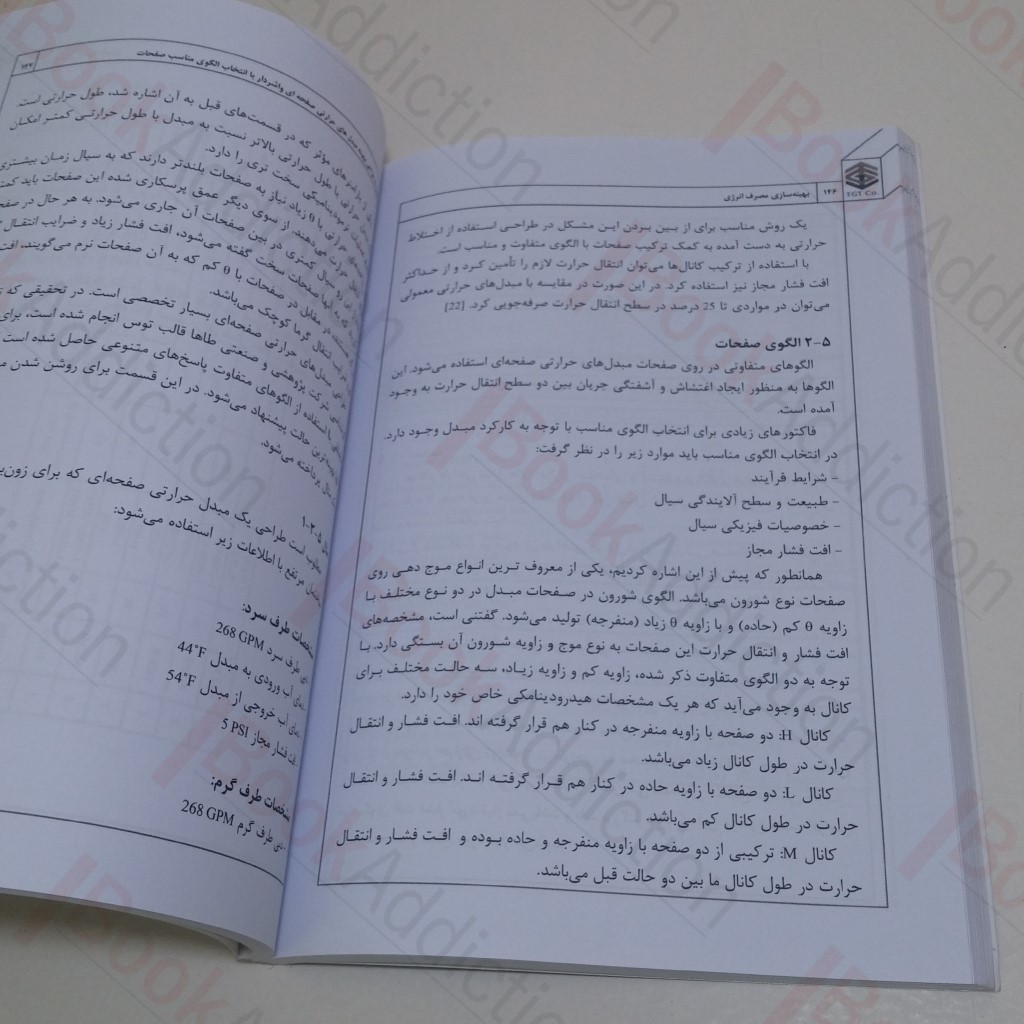 TGT Co.
۱۴۶ بهینه‌سازی مصرف انرژی
یک روش مناسب برای از بین بردن این مشکل در طراحی استفاده از اختلاط
حرارتی به دست آمده به کمک ترکیب صفحات با الگوی متفاوت و مناسب است.
با استفاده از ترکیب کانال‌ها می‌توان انتقال حرارت لازم را تأمین کرد و از حداکثر
افت فشار مجاز نیز استفاده کرد. در این صورت در مقایسه با مبدل‌های حرارتی معمولی
می‌توان در مواردی تا 25 درصد در سطح انتقال حرارت صرفه‌جویی کرد. [22]
۵-۲ الگوی صفحات
الگوهای متفاوتی در روی صفحات مبدل‌های حرارتی صفحه‌ای استفاده می‌شود. این
الگوها به منظور ایجاد اغتشاش و آشفتگی جریان بین دو سطح انتقال حرارت به وجود
آمده است.
فاکتورهای زیادی برای انتخاب الگوی مناسب با توجه به کارکرد مبدل وجود دارد.
در انتخاب الگوی مناسب باید موارد زیر را در نظر گرفت:
- شرایط فرآیند
- طبیعت و سطح آلایندگی سیال
- خصوصیات فیزیکی سیال
- افت فشار مجاز
همانطور که پیش از این اشاره کردیم، یکی از معروف ترین انواع موج دهی روی
صفحات نوع شورون می‌باشد. الگوی شورون در صفحات مبدل در دو نوع مختلف با
زاویه θ کم (حاده) و با زاویه θ زیاد (منفرجه) تولید می‌شود. گفتنی است، مشخصه‌های
افت فشار و انتقال حرارت این صفحات به نوع موج و زاویه شورون آن بستگی دارد. با
توجه به دو الگوی متفاوت ذکر شده، زاویه کم و زاویه زیاد، سه حالت مختلف برای
کانال به وجود می‌آید که هر یک مشخصات هیدرودینامکی خاص خود را دارد.
کانال H: دو صفحه با زاویه منفرجه در کنار هم قرار گرفته اند. افت فشار و انتقال
حرارت در طول کانال زیاد می‌باشد.
کانال L: دو صفحه با زاویه حاده در کنار هم قرار گرفته اند. افت فشار و انتقال
حرارت در طول کانال کم می‌باشد.
کانال M: ترکیبی از دو صفحه با زاویه منفرجه و حاده بوده و افت فشار و انتقال
حرارت در طول کانال ما بین دو حالت قبل می‌باشد.
های حرارتی صفحه ای واشردار با انتخاب الگوی مناسب صفحات ۱۴۷
های مؤثر که در قسمت‌های قبل به آن اشاره شد، طول حرارتی است.
حرارتی با طول حرارتی بالاتر نسبت به مبدل با طول حرارتی کمتر امکان
ترمودینامیکی سخت تری را دارد.
حرارتی با θ زیاد نیاز به صفحات بلندتر دارند که به سیال زمان بیشتری
حرارت می‌دهند. از سوی دیگر عمق پرسکاری شده این صفحات باید کمتر
رو سیال کمتری در بین صفحات آن جاری می‌شود. به هر حال در صفحه
که به آنها صفحات سخت گفته می‌شود، افت فشار زیاد و ضرایب انتقال
در مقابل در صفحات با θ کم که به آن صفحات نرم می‌گویند، افت
انتقال گرما کوچک می‌باشد.
مبدل‌های حرارتی صفحه‌ای بسیار تخصصی است. در تحقیقی که
شرکت پژوهشی و صنعتی طاها قالب توس انجام شده است، برای
با استفاده از الگوهای متفاوت پاسخ‌های متنوعی حاصل شده است
ترین حالت پیشنهاد می‌شود. در این قسمت برای روشن شدن
پرداخته می‌شود.
۵-۲-۱
است طراحی یک مبدل حرارتی صفحه‌ای که برای
مرتفع با اطلاعات زیر استفاده می‌شود:
مشخصات طرف سرد:
طرف سرد 268 GPM
آب ورودی به مبدل 44°F
آب خروجی از مبدل 54°F
فشار مجاز 5 PSI
مشخصات طرف گرم:
طرف گرم 268 GPM
Book Addiction